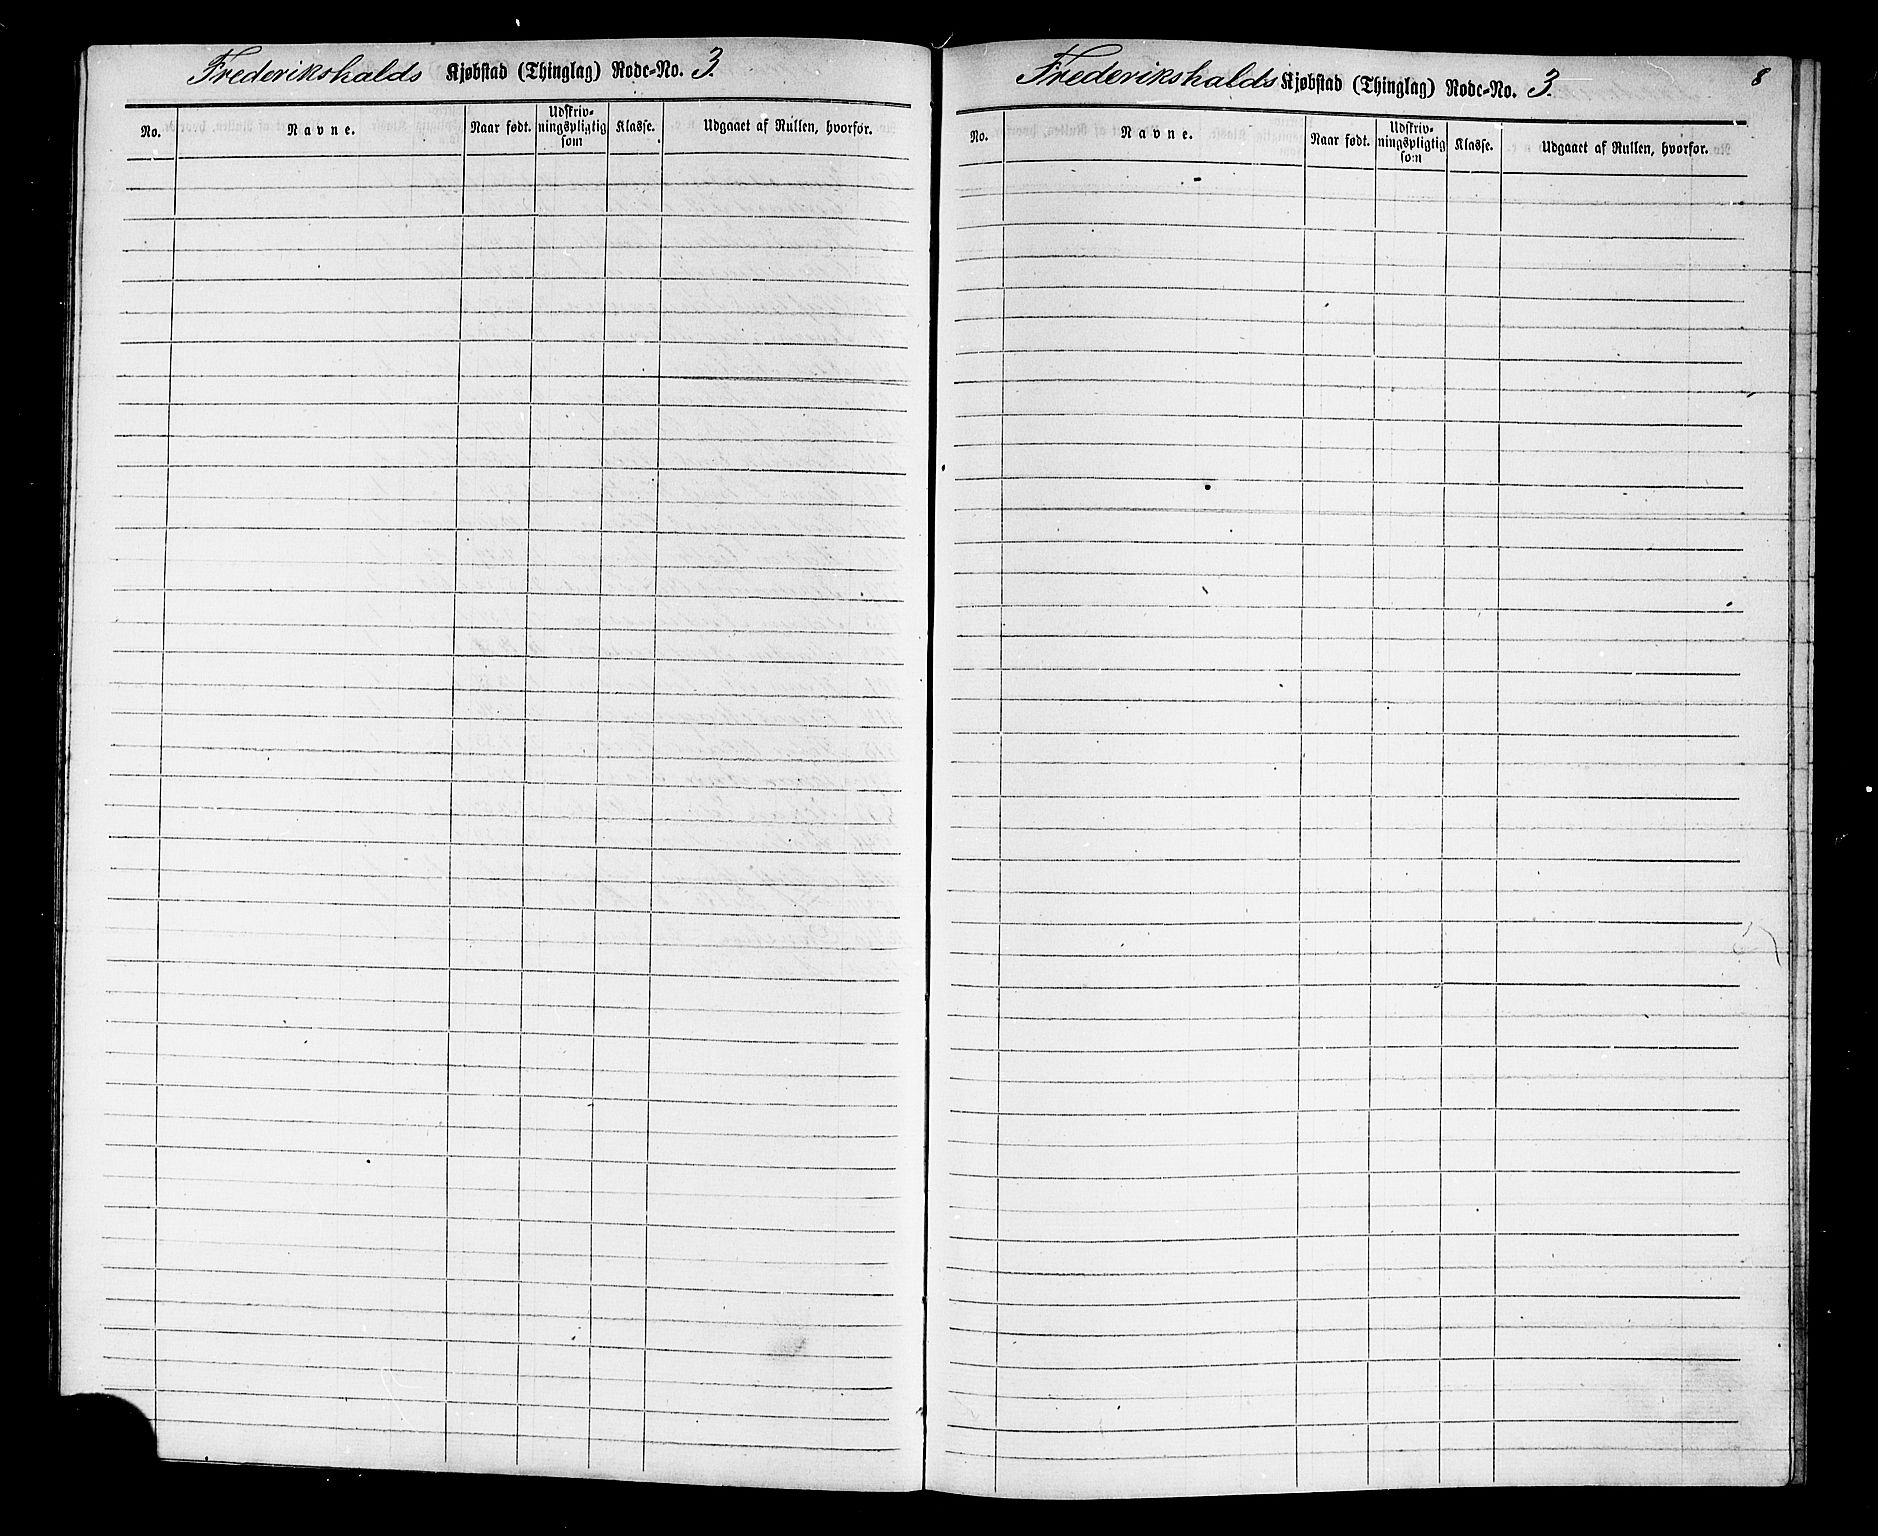 Frederikshalds Kjøbstad (Thinglag) Rode-No. 3.
No. Navne. Naar født. Udskriv-ningspligtig som Klasse. Udgaaet af Rullen, hvorfor.
Frederikshalds Kjøbstad (Thinglag) Rode-No. 3. 8
No. Navne. Naar født. Udskriv-ningspligtig som Klasse. Udgaaet af Rullen, hvorfor.